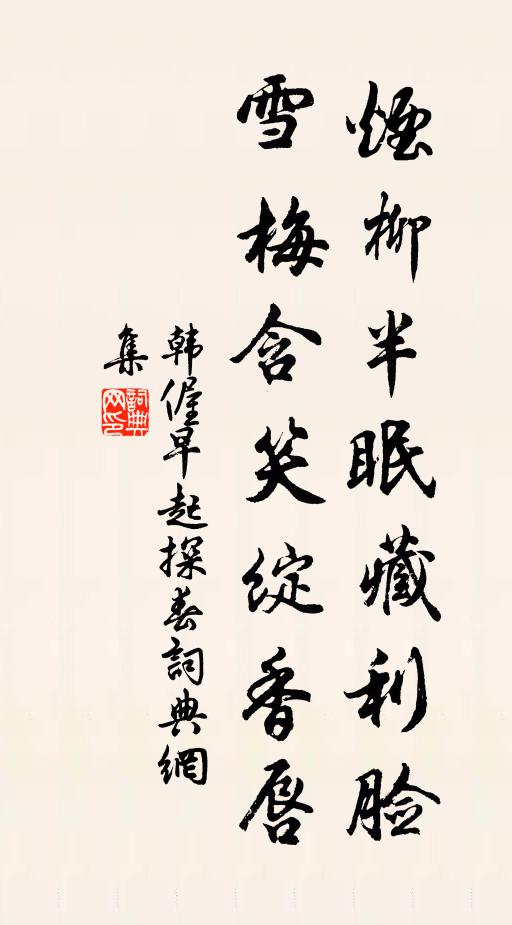 煙柳半眠藏利脸
雪梅含笑綻香唇
韩偓早起探春詞典網
集
詞典
网印